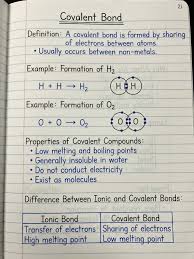 21
Covalent Bond
Definition: A covalent bond is formed by sharing
of electrons between atoms.
• Usually occurs between non-metals.
Example: Formation of H₂
H + H → H₂
H H
Example: Formation of O₂
O + O → O₂
O O
Properties of Covalent Compounds:
• Low melting and boiling points
• Generally insoluble in water
• Do not conduct electricity
• Exist as molecules
Difference Between Ionic and Covalent Bonds:
Ionic Bond Covalent Bond
Transfer of electrons Sharing of electrons
High melting point Low melting point